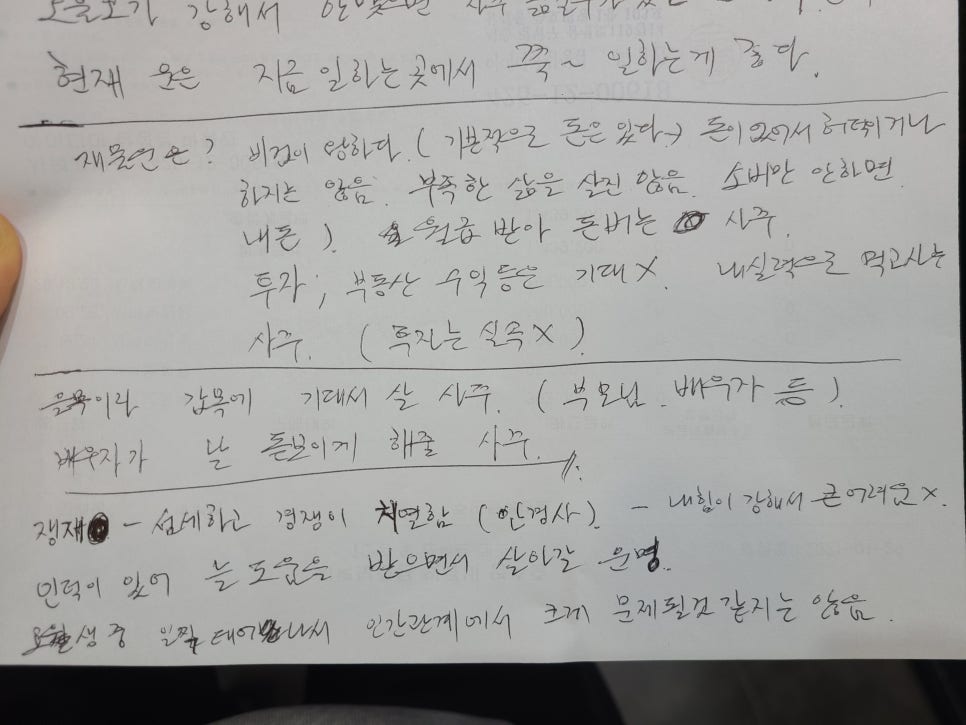 강해서
현재 운은 지금 일하는 곳에서 쭉~ 일하는게 좋다.
재물운은? 비겁이 왕하다. (기본적으로 돈은 있다→ 돈이 없어서 허덕이거나
하지는 않음. 부족한 삶을 살진 않음. 소비만 안하면
내돈). 월급 받아 돈버는 사주.
투자, 부동산 수익 등은 기대 X. 내실력으로 먹고사는
사주. (투자는 실속 X)
을목이라 갑목에 기대서 살 사주. (부모님. 배우자 등).
배우자가 날 돋보이게 해줄 사주.
쟁재 - 섬세하고 경쟁이 치열함 (안경사). - 내힘이 강해서 큰 어려움 X.
인덕이 있어 늘 도움을 받으면서 살아갈 운명.
생 중 일찍 태어나서 인간관계에서 크게 문제될것 같지는 않음.